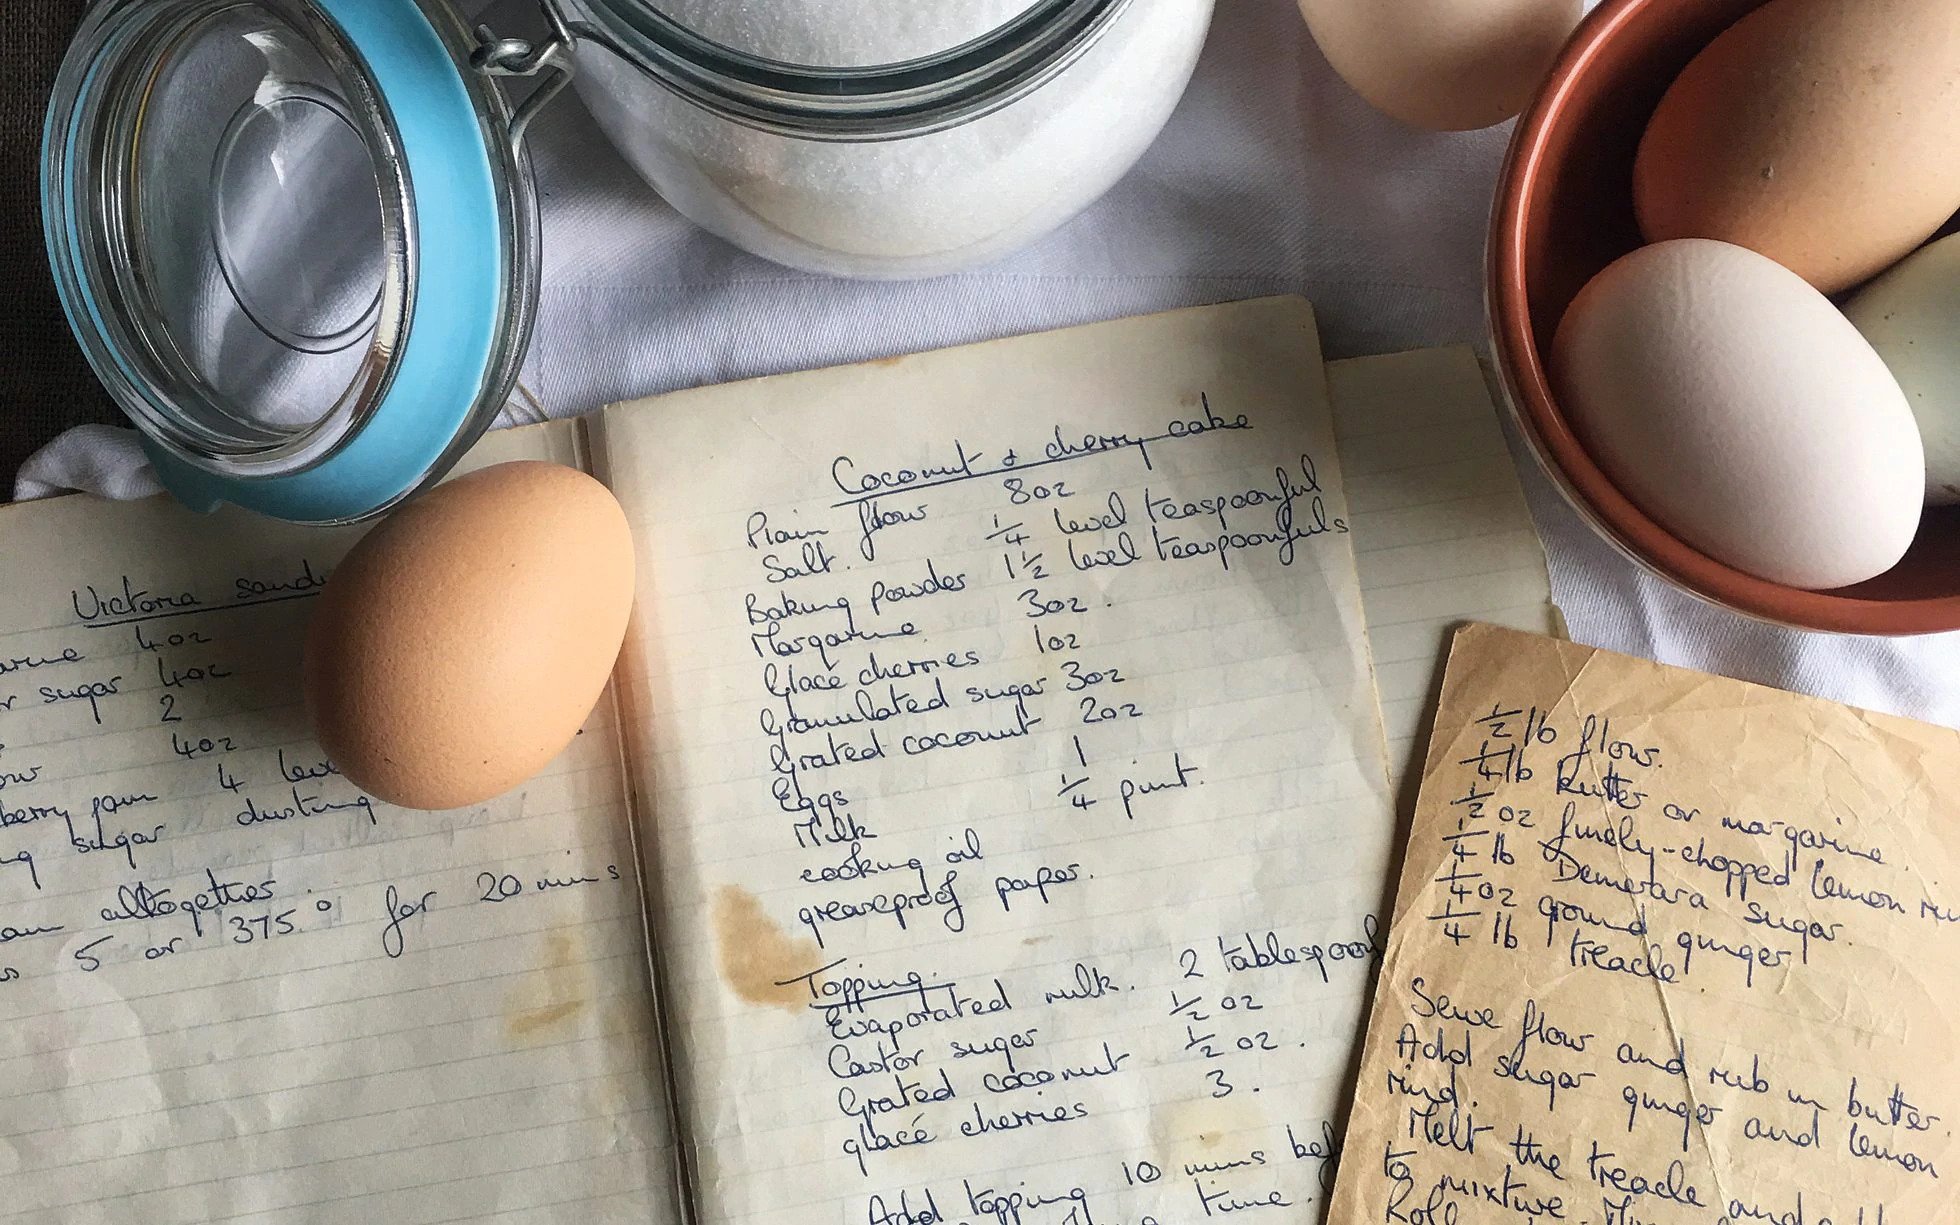 Victoria
4oz
sugar 4oz
2
4oz
4
sugar dusting
altogether
5 or 375° for 20 mins
Coconut & cherry cake
Plain flour 8oz
Salt. 1/4 level teaspoonful
Baking powder 1 1/2 level teaspoonfuls
Margarine 3oz.
Glacé cherries 1oz
Granulated sugar 3oz
Grated coconut 2oz
Eggs 1
Milk 1/4 pint.
cooking oil
greaseproof paper.
Topping.
Evaporated milk. 2
Castor sugar 1/2 oz
Grated coconut 1/2 oz.
glacé cherries 3.
Add topping 10 mins
time.
1/2 lb flour.
1/4 lb butter or margarine.
1/2 oz finely-chopped lemon
1/4 lb Demerara sugar.
1/4 oz ground ginger
1/4 lb treacle.
Seive flour and rub in butter.
Add sugar ginger and lemon
rind.
Melt the treacle and
to mixture.
Roll